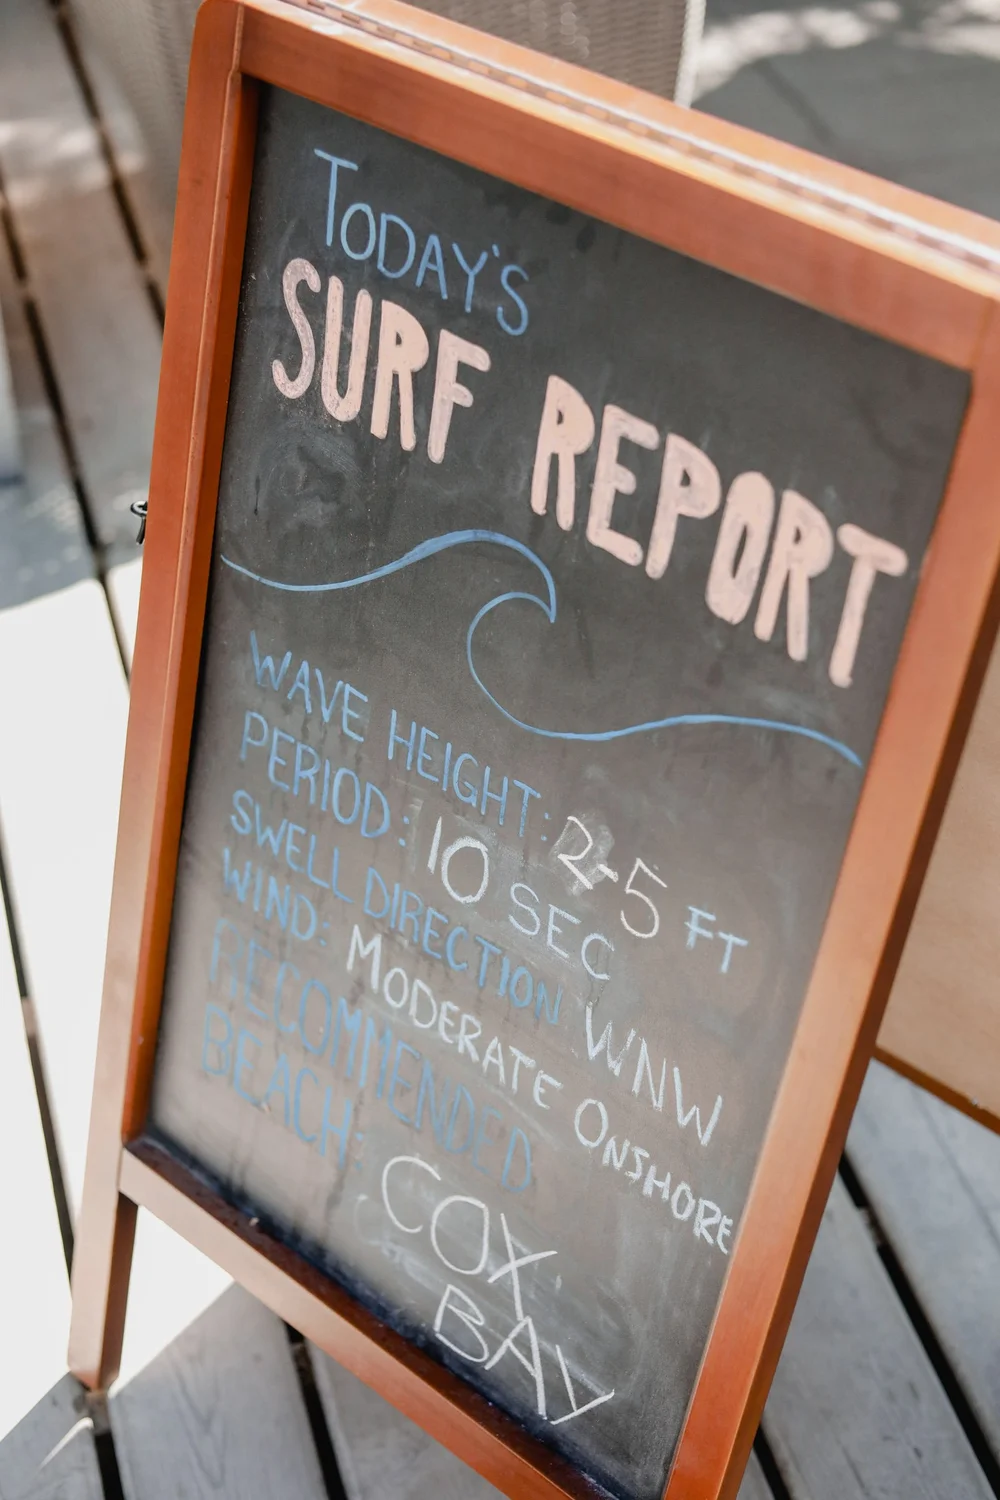 TODAY'S
SURF REPORT
WAVE HEIGHT: 2-5 FT
PERIOD: 10 SEC
SWELL DIRECTION WNW
WIND: MODERATE ONSHORE
RECOMMENDED
BEACH: COX
BAY